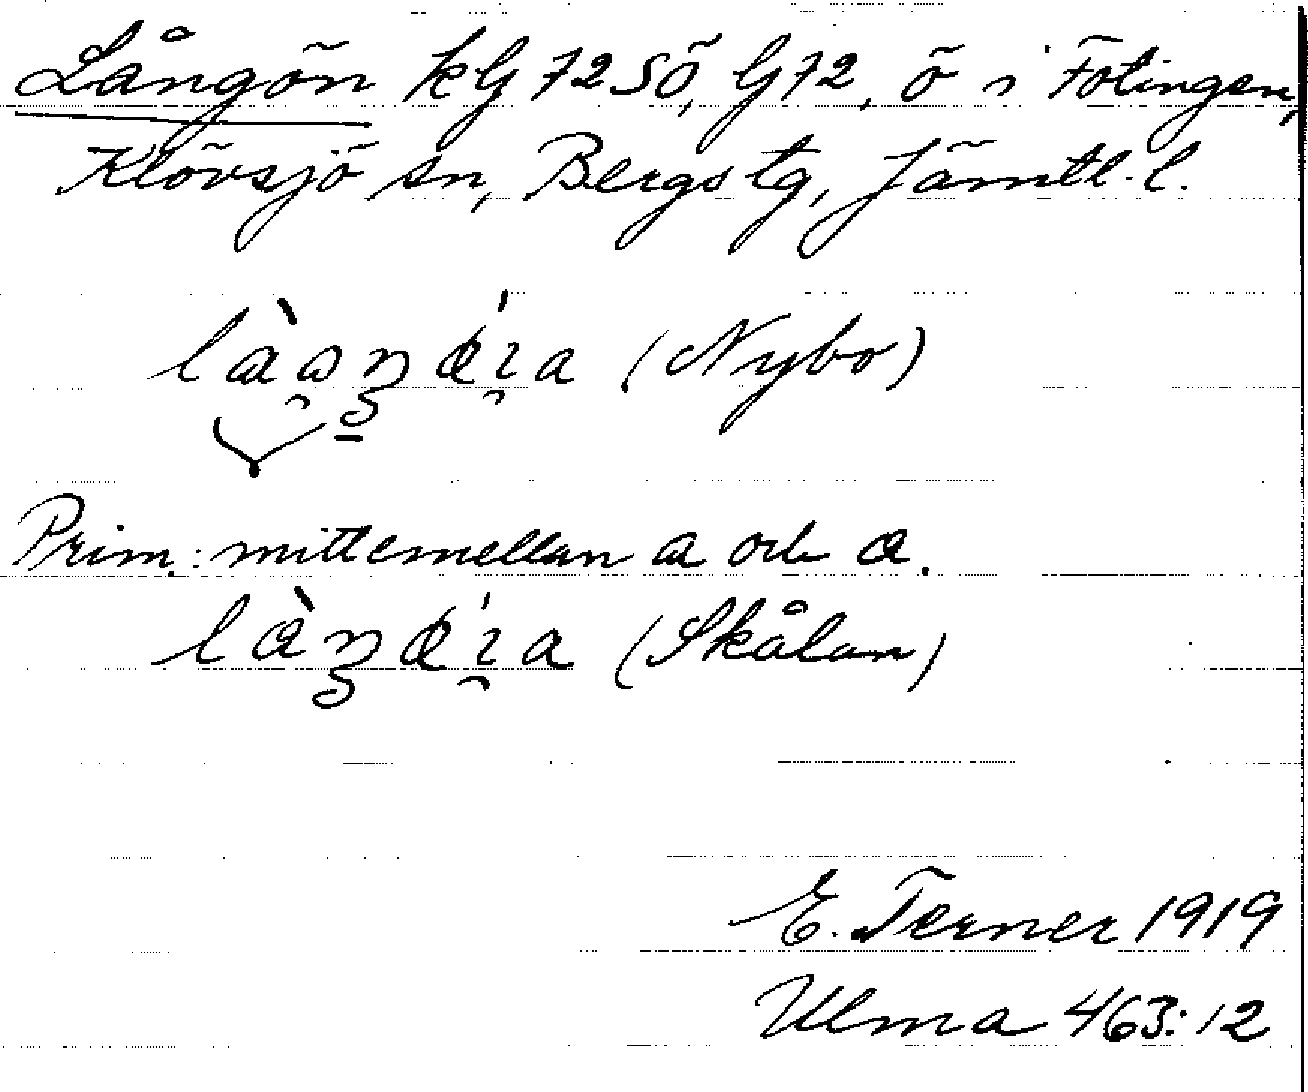 Långön kG 72 SÖ, G 72, ö i Fotingen,
Klövsjö sn, Bergs tg, Jämtl. l.
(Nybo)
Prim.: mittemellan a och ɑ.
(Skålan)
E. Terner 1919
Ulma 463:12